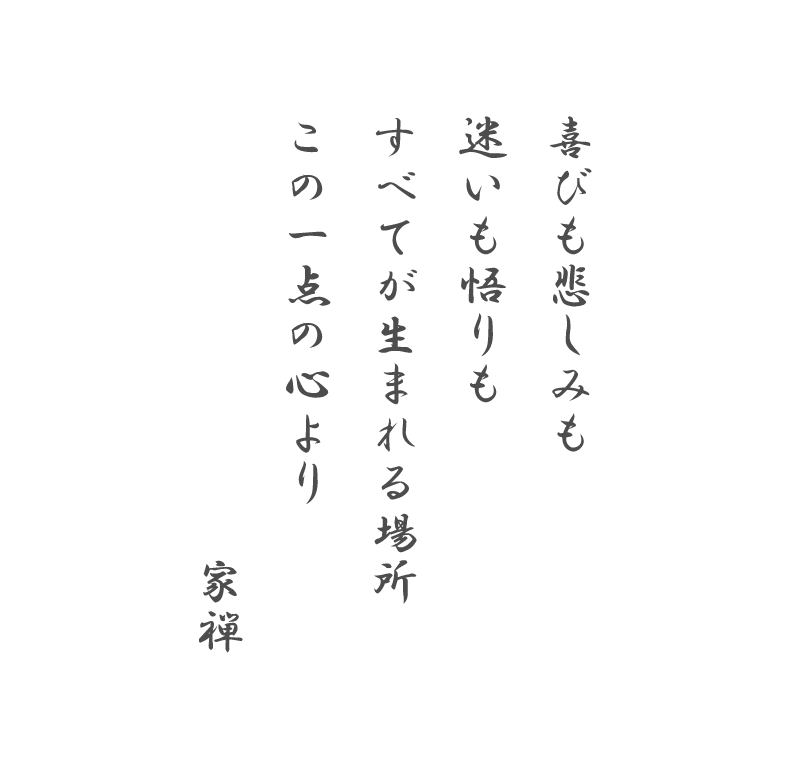 喜びも悲しみも
迷いも悟りも
すべてが生まれる場所
この一点の心より
家禅